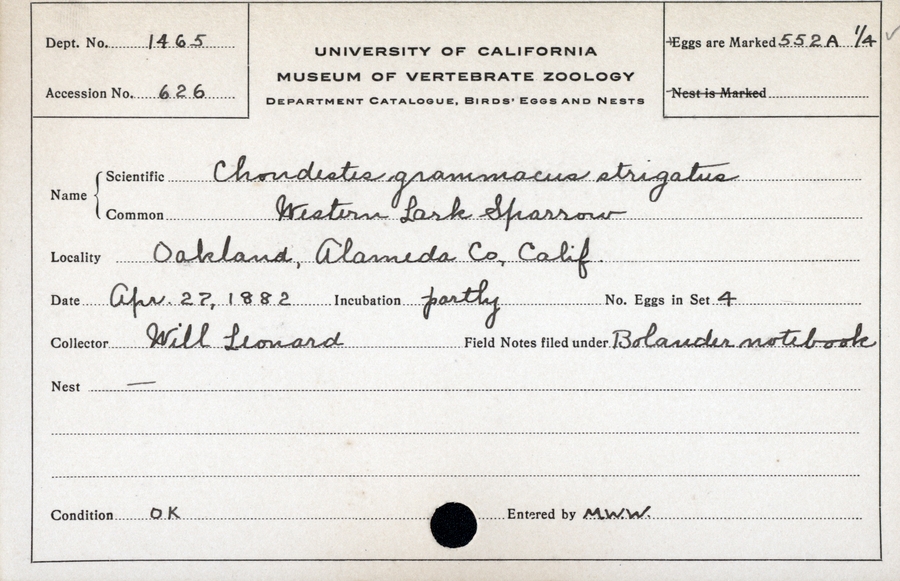 Dept. No. 1465
Accession No. 626
UNIVERSITY OF CALIFORNIA
MUSEUM OF VERTEBRATE ZOOLOGY
DEPARTMENT CATALOGUE, BIRDS' EGGS AND NESTS
Eggs are Marked 552A 1/4
Nest is Marked
Name
Scientific Chondestes grammacus strigatus
Common Western Lark Sparrow
Locality Oakland, Alameda Co, Calif.
Date Apr. 27, 1882 Incubation partly No. Eggs in Set 4
Collector Will Leonard Field Notes filed under Bolander notebook
Nest —
Condition OK Entered by M.W.W.